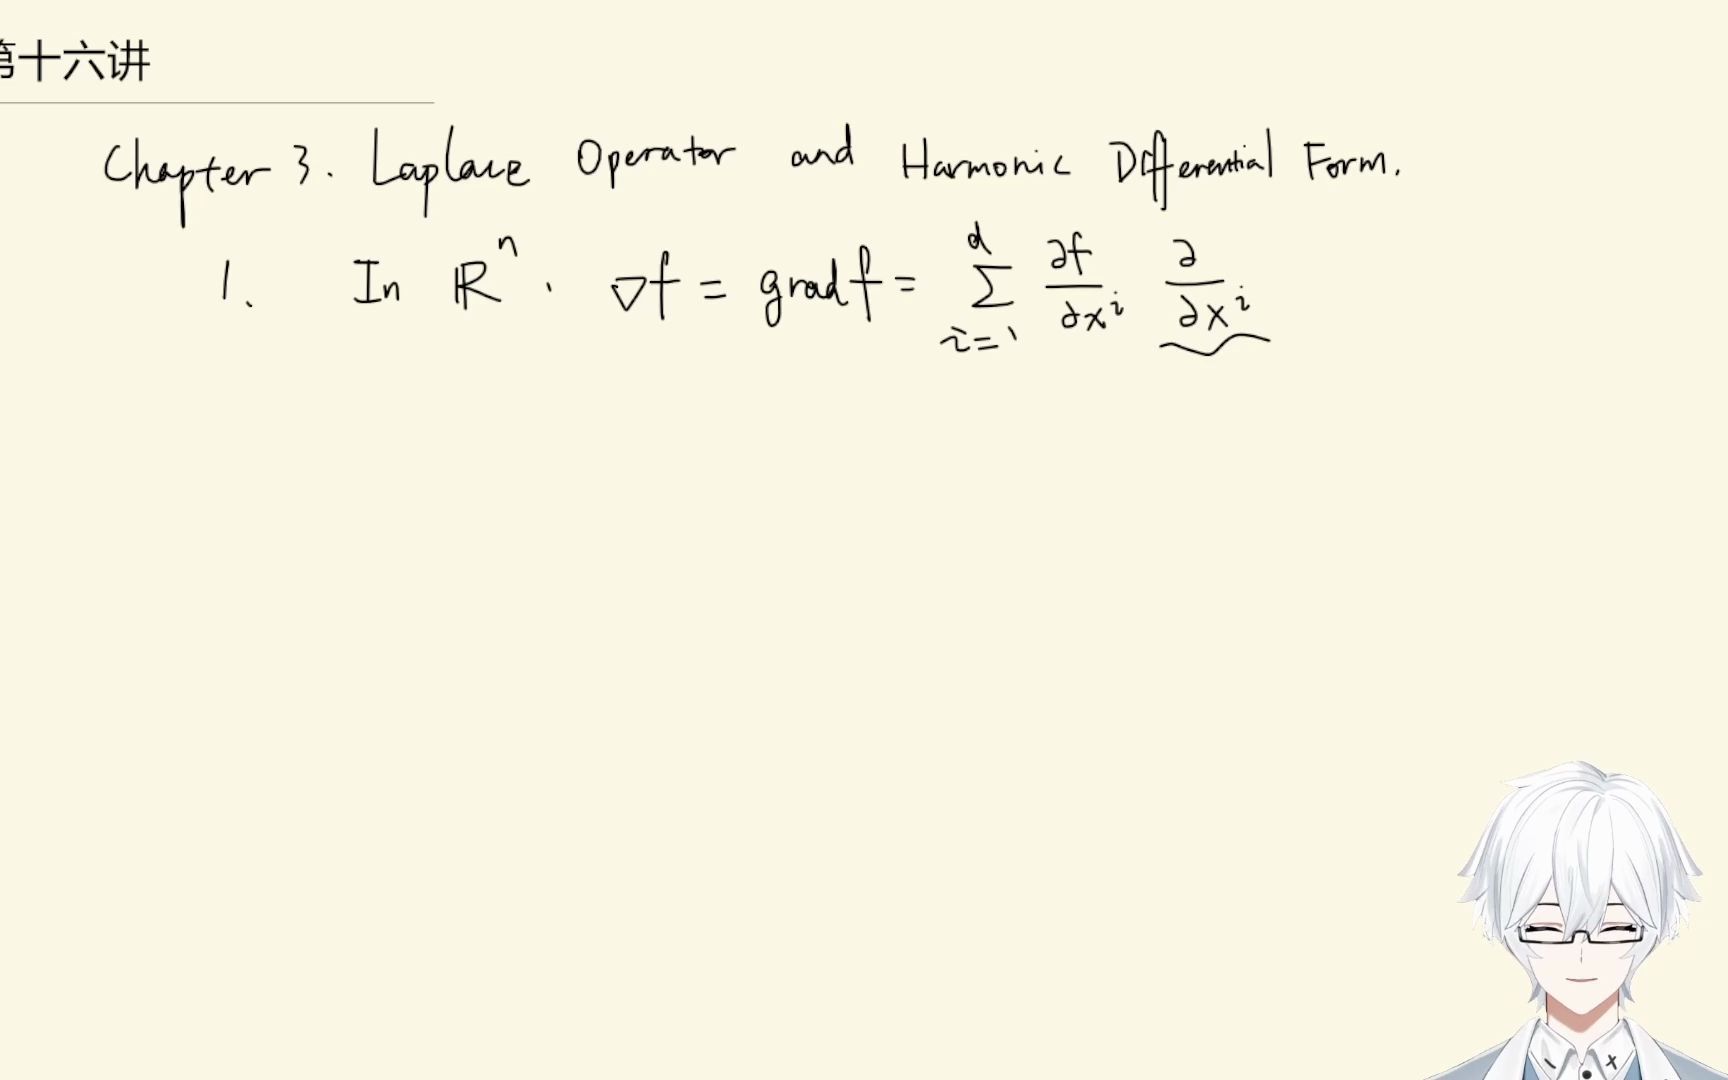 第十六讲
Chapter 3. Laplace Operator and Harmonic Differential Form.
1. In ℝⁿ. ∇f = grad f = ∑_{i=1}^{d} ∂f/∂xⁱ ∂/∂xⁱ